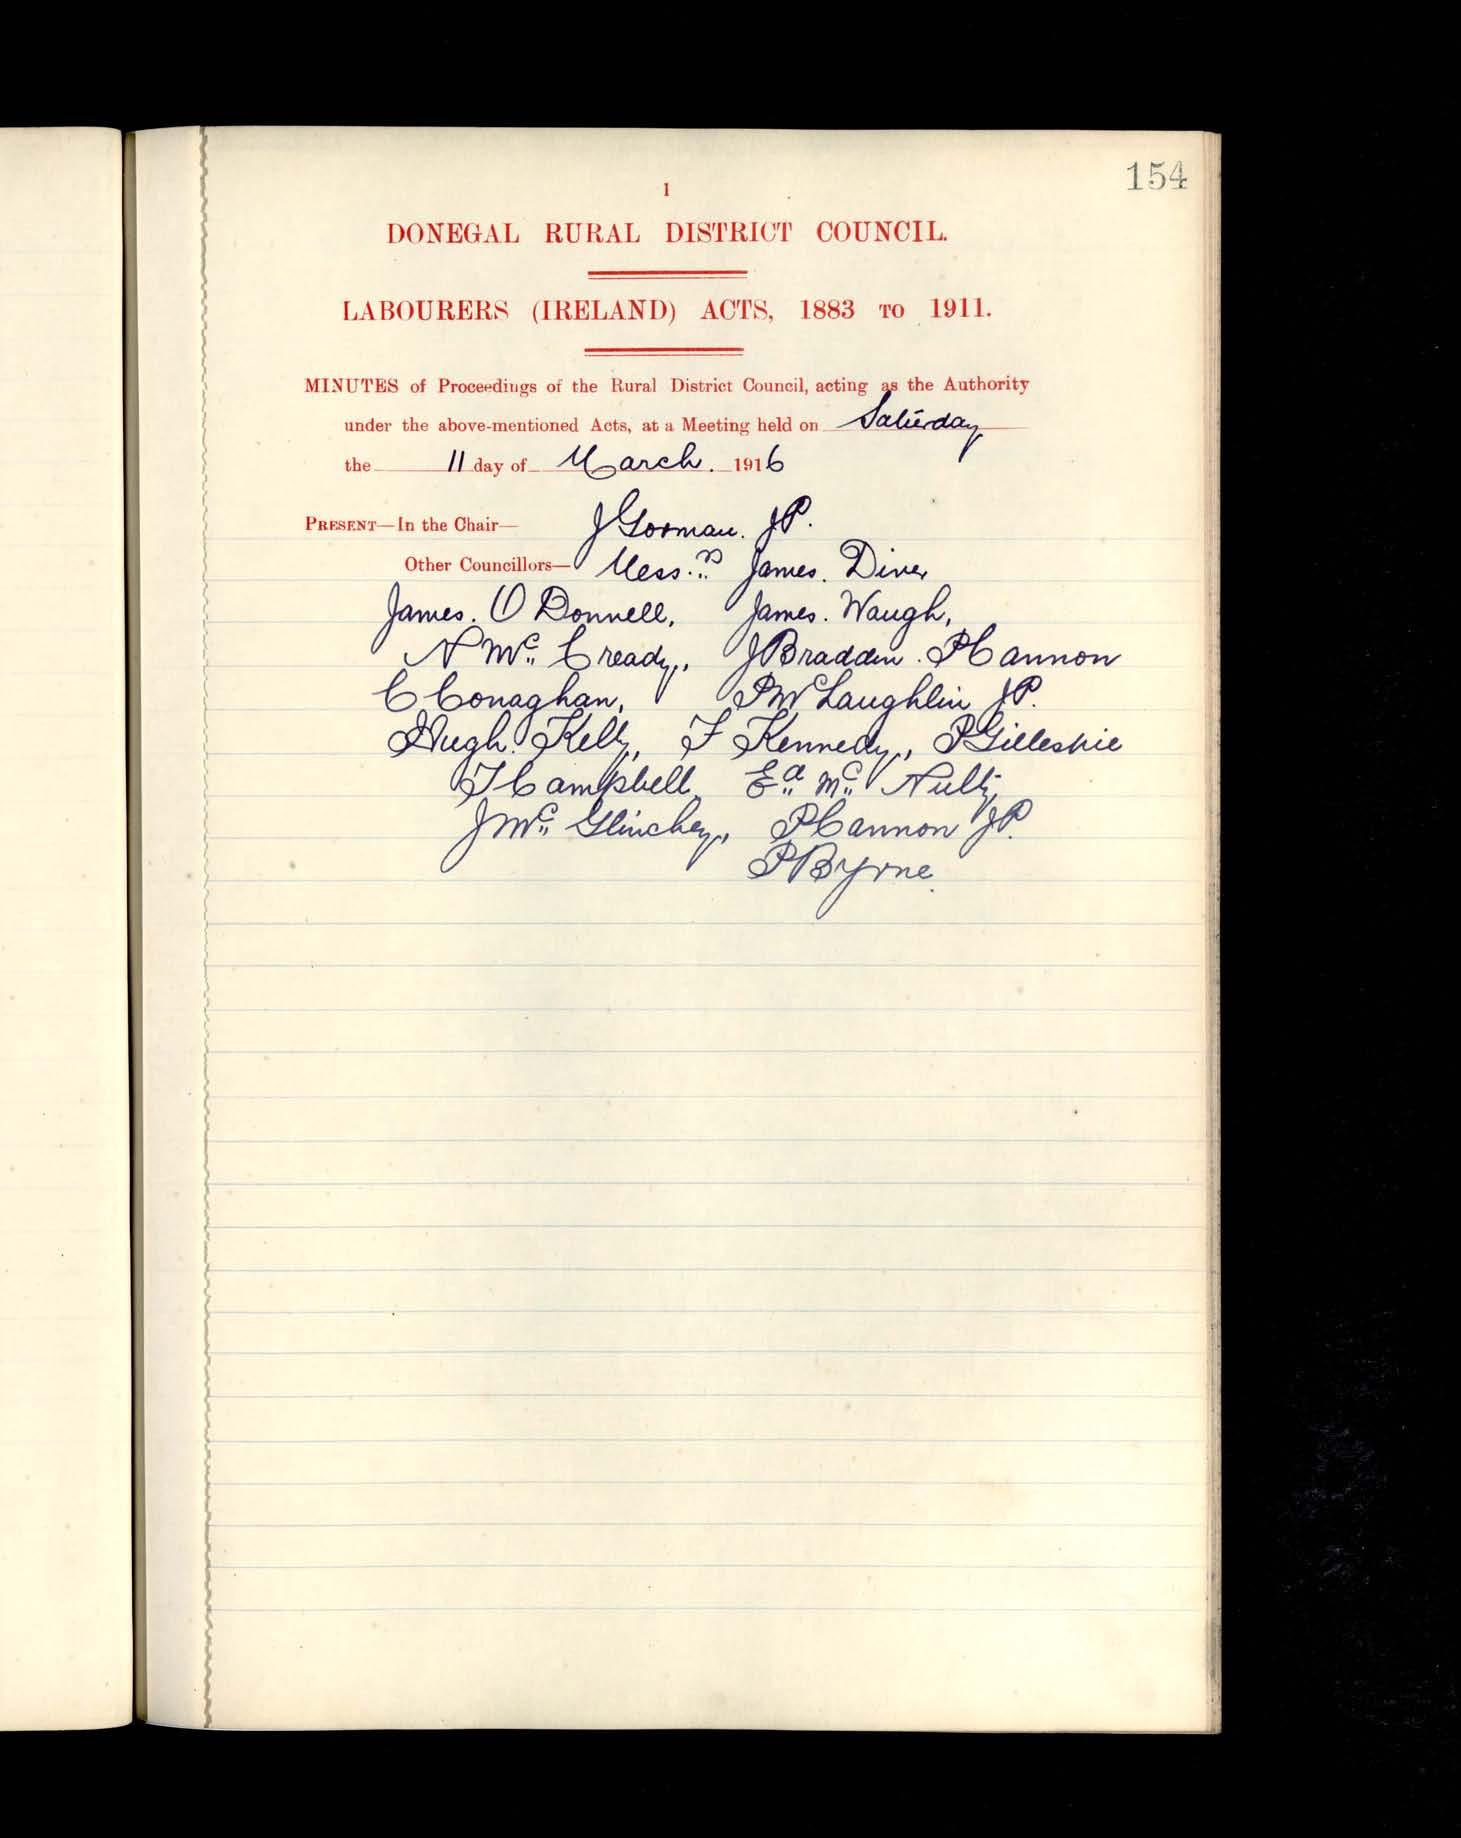 154
1
DONEGAL RURAL DISTRICT COUNCIL.
LABOURERS (IRELAND) ACTS, 1883 TO 1911.
MINUTES of Proceedings of the Rural District Council, acting as the Authority
under the above-mentioned Acts, at a Meeting held on Saturday
the 11 day of March. 1916
PRESENT—In the Chair— J Gorman. JP.
Other Councillors— Mess.rs James. Diver
James. O Donnell, James. Waugh,
N Mc Cready, J Bradden. P Cannon
C Conaghan, P McLaughlin JP.
Hugh. Kelly, F Kennedy, P Gillespie
T Campbell, Ed Mc Nulty,
J Mc Glinchey, P Cannon JP.
P Byrne.